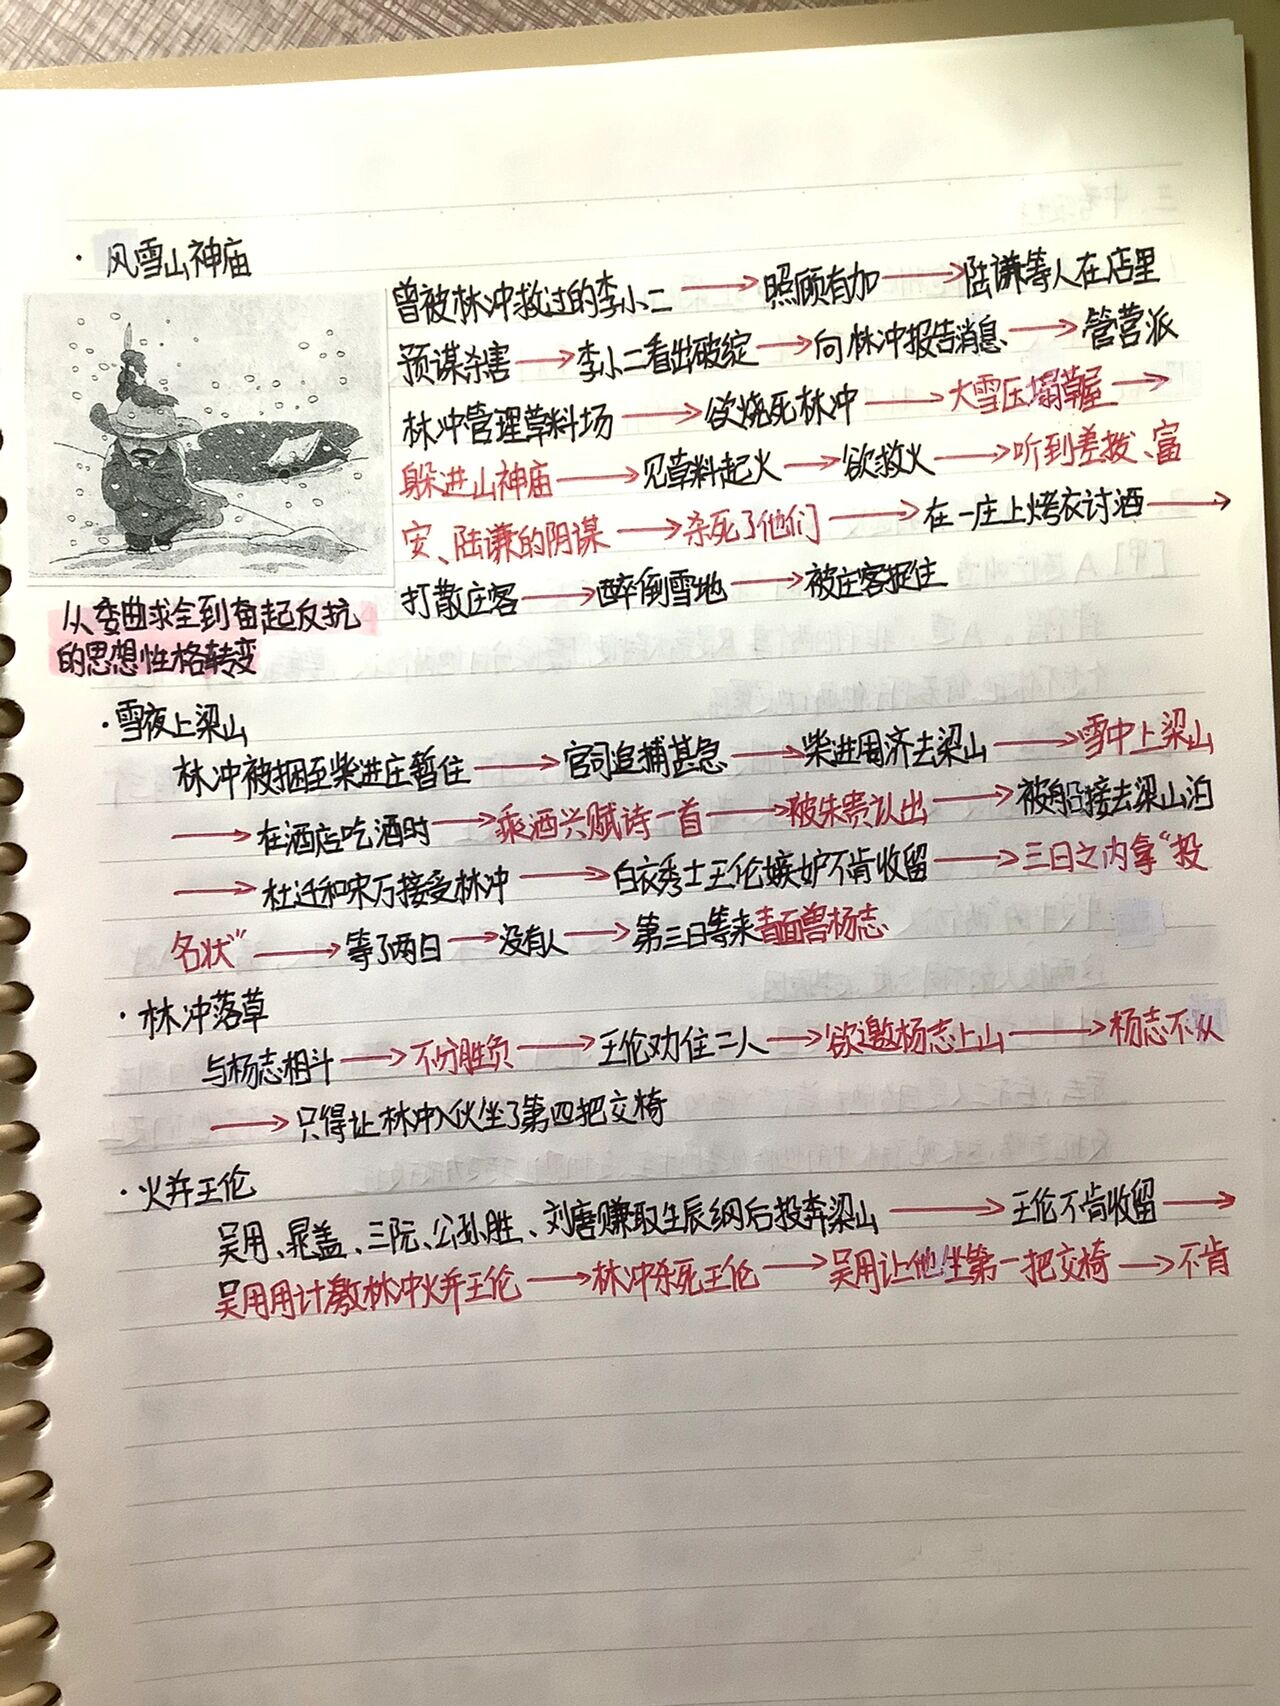 · 风雪山神庙
曾被林冲救过的李小二→照顾有加→陆谦等人在店里
预谋杀害→李小二看出破绽→向林冲报告消息→管营派
林冲管理草料场→欲烧死林冲→大雪压塌草屋→
躲进山神庙→见草料起火→欲救火→听到差拨、富
安、陆谦的阴谋→杀死了他们→在一庄上烤衣讨酒→
打散庄客→醉倒雪地→被庄客捉住
从委曲求全到奋起反抗
的思想性格转变
· 雪夜上梁山
林冲被捆至柴进庄暂住→官司追捕甚急→柴进周济去梁山→雪中上梁山
→在酒店吃酒时→乘酒兴赋诗一首→被朱贵认出→被船接去梁山泊
→杜迁和宋万接受林冲→白衣秀士王伦嫉妒不肯收留→三日之内拿“投
名状”→等了两日→没有人→第三日等来青面兽杨志
· 林冲落草
与杨志相斗→不分胜负→王伦劝住二人→欲邀杨志上山→杨志不从
→只得让林冲入伙坐了第四把交椅
· 火并王伦
吴用、晁盖、三阮、公孙胜、刘唐赚取生辰纲后投奔梁山→王伦不肯收留→
吴用用计激林冲火并王伦→林冲杀死王伦→吴用让他坐第一把交椅→不肯